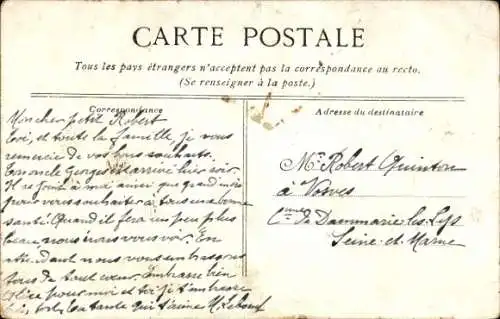 CARTE POSTALE
Tous les pays étrangers n'acceptent pas la correspondance au recto.
(Se renseigner à la poste.)
Correspondance
Adresse du destinataire
Mon cher petit Robert
toi, et toute la famille, je vous
remercie de vos bons souhaits.
Ton oncle Georges est arrivé hier soir.
Il se joint à moi ainsi que grand
pour vous souhaiter à tous une bonne
santé. Quand il fera un peu plus
beau, nous irons vous voir. En
attendant nous vous embrassons
tous de tout cœur. Embrasse bien
pour moi et toi je t'embrasse
Ta tante qui t'aime
Mr Robert Quinton
à Vosves
Cne de Dammarie les Lys
Seine et Marne